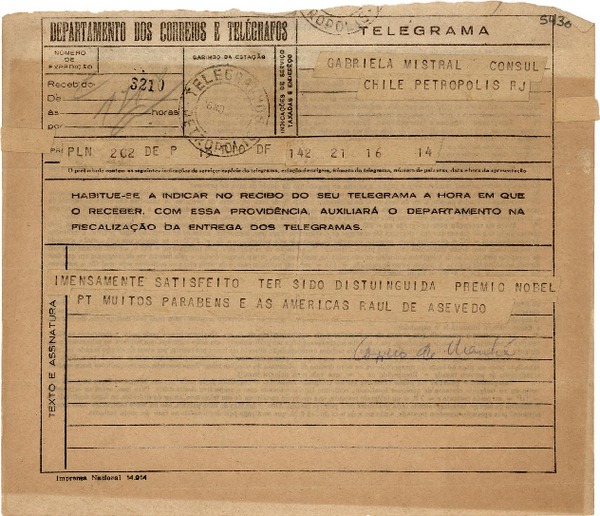 5430
DEPARTAMENTO DOS CORREIOS E TELÉGRAFOS
TELEGRAMA
NÚMERO DE EXPEDIÇÃO
3210
Recebido:
De
às horas
por
CARIMBO DA ESTAÇÃO
TELEGRAMAS
PETROPOLIS
INDICAÇÕES DE SERVIÇO TAXADAS E ENDEREÇO
GABRIELA MISTRAL CONSUL
CHILE PETROPOLIS RJ
PLN 202 DE P DF 142 21 16 14
O preâmbulo contém as seguintes indicações de serviço: espécie do telegrama, estação de origem, número do telegrama, número de palavras, data e hora da apresentação
HABITUE-SE A INDICAR NO RECIBO DO SEU TELEGRAMA A HORA EM QUE
O RECEBER, COM ESSA PROVIDÊNCIA, AUXILIARÁ O DEPARTAMENTO NA
FISCALIZAÇÃO DA ENTREGA DOS TELEGRAMAS.
TEXTO E ASSINATURA
IMENSAMENTE SATISFEITO TER SIDO DISTUINGUIDA PREMIO NOBEL
PT MUITOS PARABENS E AS AMERICAS RAUL DE ASEVEDO
Imprensa Nacional 14.914